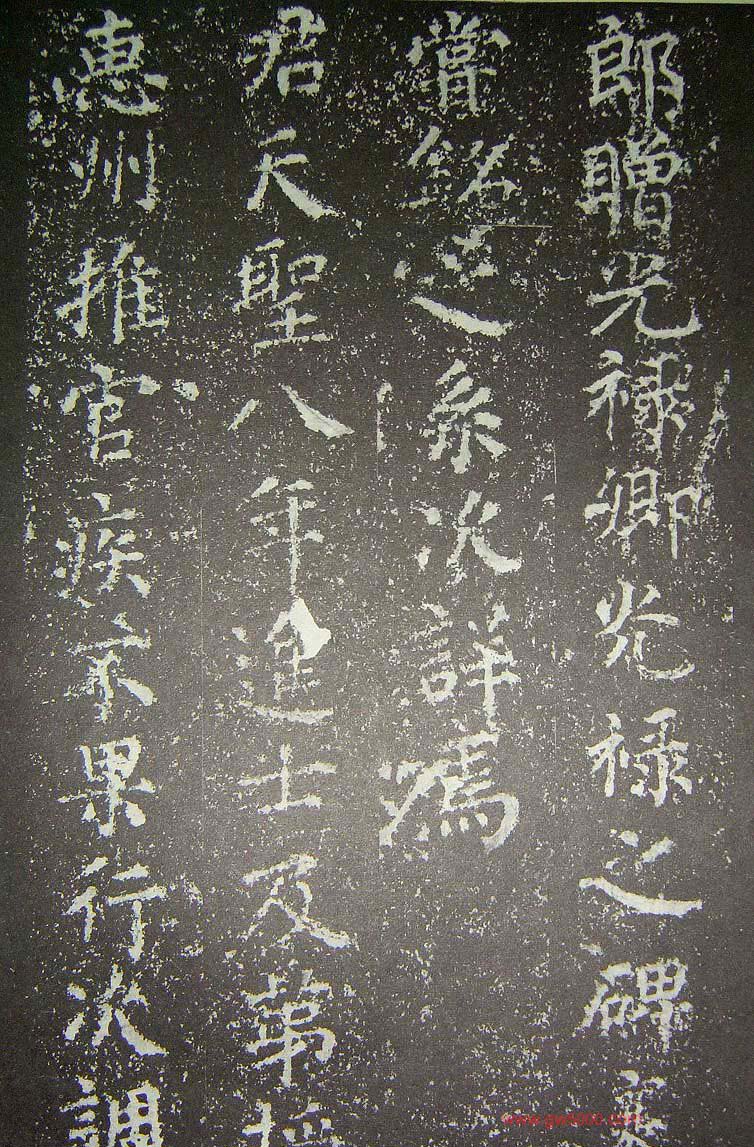 郎贈光禄卿光禄之碑
嘗銘之系次詳焉
君天聖八年進士及第
惠州推官疾不果行次調